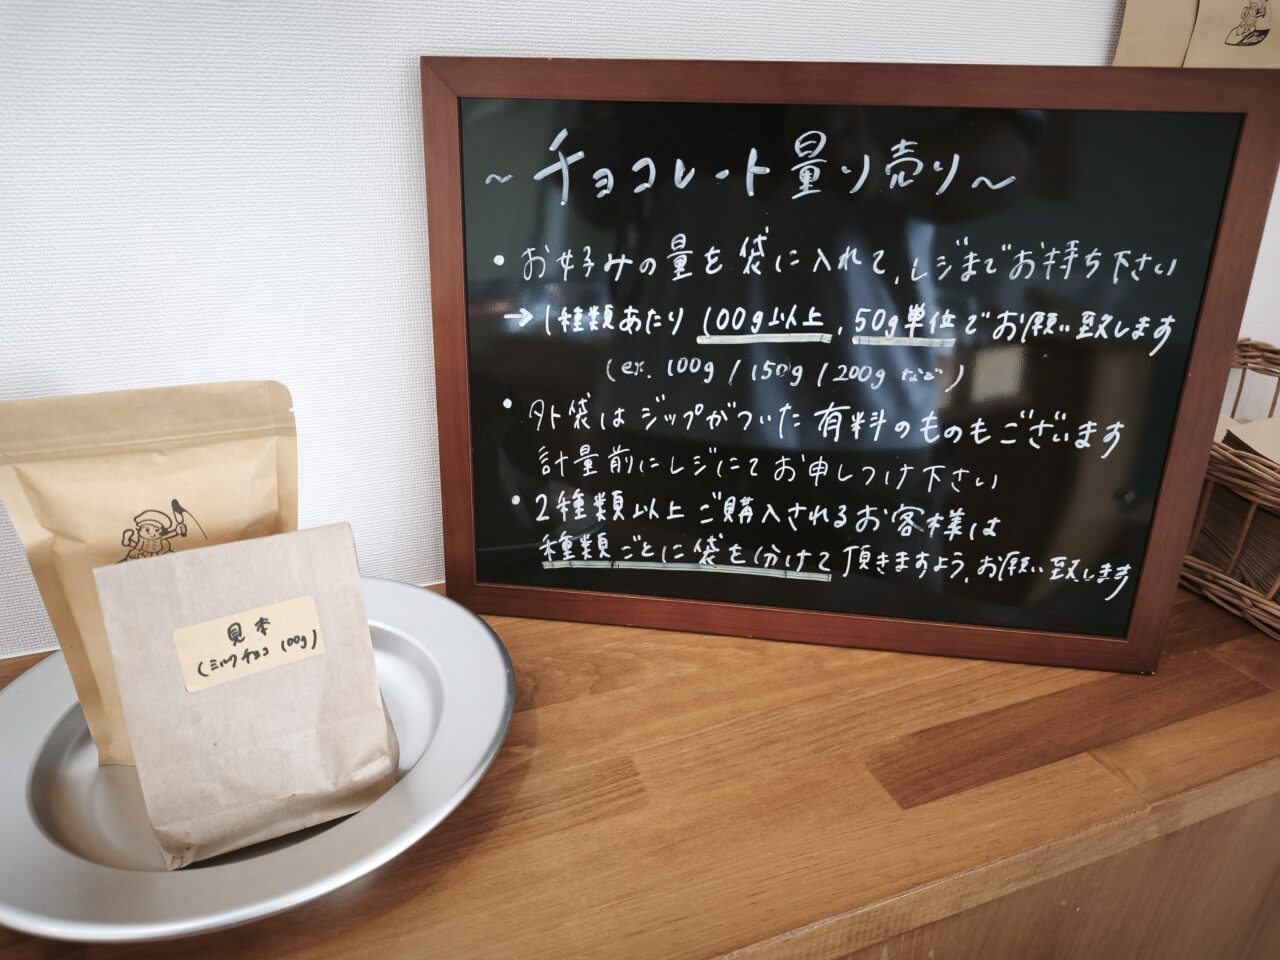 ~チョコレート量り売り~
・お好みの量を袋に入れて、レジまでお持ち下さい
→1種類あたり100g以上、50g単位でお願い致します
(ex. 100g / 150g / 200g など)
・外袋はジップがついた有料のものもございます
計量前にレジにてお申しつけ下さい
・2種類以上ご購入されるお客様は
種類ごとに袋を分けて頂きますよう、お願い致します
見本
(ミルクチョコ 100g)